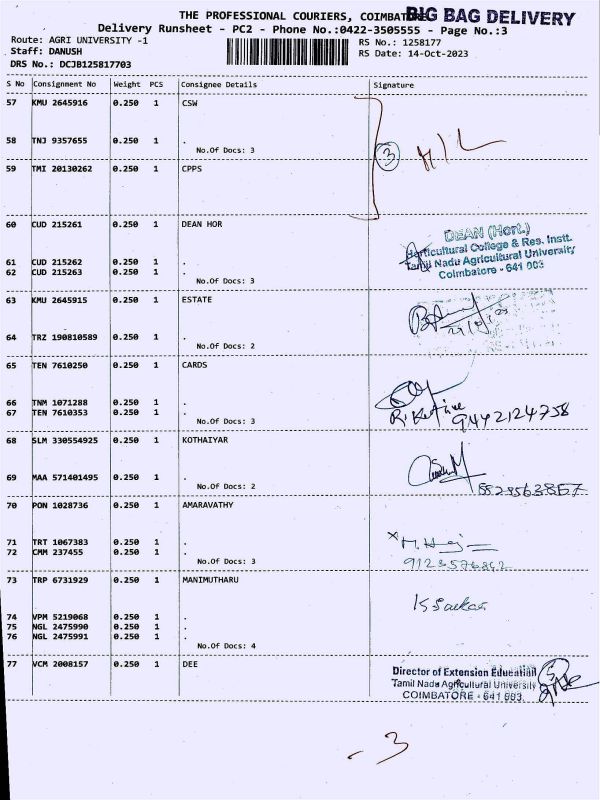 THE PROFESSIONAL COURIERS, COIMBATORE
BIG BAG DELIVERY
Delivery Runsheet - PC2 - Phone No.:0422-3505555 - Page No.:3
Route: AGRI UNIVERSITY -1
RS No.: 1258177
Staff: DANUSH
RS Date: 14-Oct-2023
DRS No.: DCJB125817703
S No Consignment No Weight PCS Consignee Details Signature
57 KMU 2645916 0.250 1 CSW
58 TNJ 9357655 0.250 1 .
No.Of Docs: 3
3
59 TMI 20130262 0.250 1 CPPS
60 CUD 215261 0.250 1 DEAN HOR
DEAN (Hort.)
Horticultural College & Res. Instt.
Tamil Nadu Agricultural University
Coimbatore - 641 003
61 CUD 215262 0.250 1 .
62 CUD 215263 0.250 1 .
No.Of Docs: 3
63 KMU 2645915 0.250 1 ESTATE
64 TRZ 190810589 0.250 1 .
No.Of Docs: 2
65 TEN 7610250 0.250 1 CARDS
66 TNM 1071288 0.250 1 .
67 TEN 7610353 0.250 1 .
No.Of Docs: 3
9442124758
68 SLM 330554925 0.250 1 KOTHAIYAR
69 MAA 571401495 0.250 1 .
No.Of Docs: 2
70 PON 1028736 0.250 1 AMARAVATHY
71 TRT 1067383 0.250 1 .
72 CMM 237455 0.250 1 .
No.Of Docs: 3
73 TRP 6731929 0.250 1 MANIMUTHARU
74 VPM 5219068 0.250 1 .
75 NGL 2475990 0.250 1 .
76 NGL 2475991 0.250 1 .
No.Of Docs: 4
77 VCM 2008157 0.250 1 DEE
Director of Extension Education
Tamil Nadu Agricultural University
COIMBATORE - 641 003.
- 3